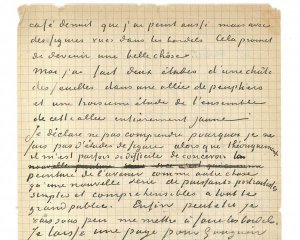 café de nuit que j'ai peint aussi mais avec
des figures vues dans les bordels. Cela promet
de devenir une belle chose.
Moi j'ai fait deux études d'une chûte
des feuilles dans une allée de peupliers
et une troisieme étude de l'ensemble
de cette allée entièrement jaune.
Je déclare ne pas comprendre pourquoi je ne
fais pas d'études de figure alors que théoriquement
il m'est parfois si difficile de concevoir la
peinture de l'avenir comme autre chose
qu'une nouvelle série de puissants portraitistes
simples et compréhensibles à tout le
grand public. Enfin peutetre je
vais sous peu me mettre à faire les bordels.
Je laisse une page pour Gauguin